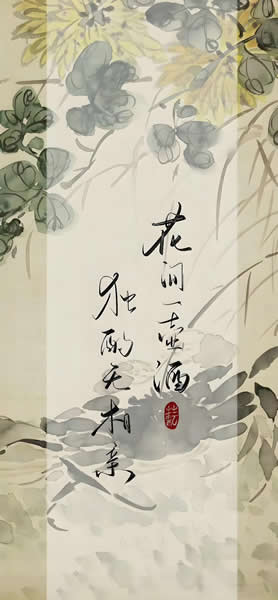 花间一壶酒
独酌无相亲